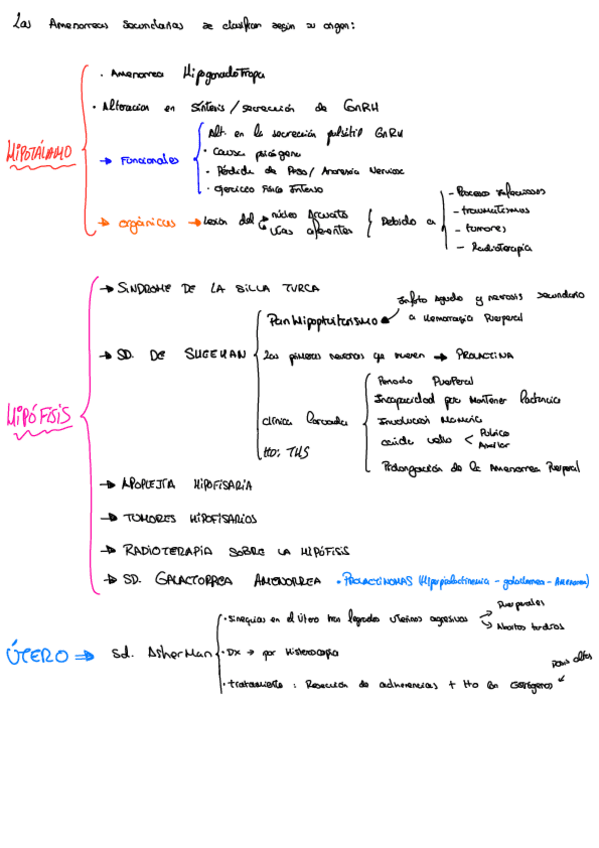 Las Amenorreas Secundarias se clasifican según su origen:
HIPOTÁLAMO
· Amenorrea Hipogonadotropa
· Alteración en síntesis / secreción de GnRH
→ Funcionales
Alt. en la secreción pulsátil GnRH
· Causa psicógena
· Pérdida de Peso / Anorexia Nerviosa
· Ejercicio Físico Intenso
→ orgánicas → Lesión del núcleo Arcuato
vías aferentes
Debido a
- Procesos infecciosos
- traumatismos
- tumores
- Radioterapia
HIPÓFISIS
→ SÍNDROME DE LA SILLA TURCA
→ SD. DE SHEEHAN
Panhipopituitarismo
Infarto agudo y necrosis secundario
a Hemorragia Puerperal
Las primeras neuronas que mueren → PROLACTINA
clínica
Periodo Puerperal
Incapacidad por Mantener Lactancia
Involución Mamaria
caída vello < Púbico
Axilar
Prolongación de la Amenorrea Puerperal
tto: THS
→ APOPLEJÍA HIPOFISARIA
→ TUMORES HIPOFISARIOS
→ RADIOTERAPIA SOBRE LA HIPÓFISIS
→ SD. GALACTORREA AMENORREA · PROLACTINOMAS (Hiperprolactinemia - galactorrea - Amenorrea)
ÚTERO ⇒ Sd. Asherman
· Sinequias en el Útero tras legrados uterinos agresivos
Puerperales
Abortos tardíos
· DX → por Histeroscopia
· tratamiento : Resección de adherencias + tto con Estrógenos
dosis altas